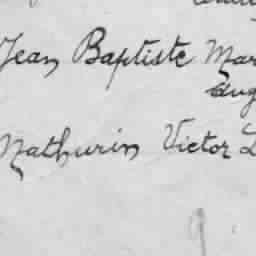 Jean Baptiste Mar
Aug
Mathurin Victor L